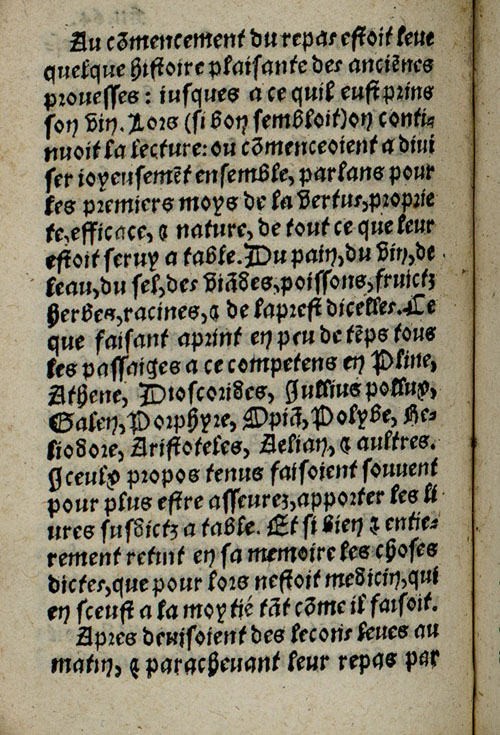 Au cõmencement du repas estoit leue
quelque histoire plaisante des anciẽnes
prouesses : iusques a ce quil eust prins
son vin. Lors (si bon sembloit) on conti-
nuoit la lecture: ou cõmenceoient a diui
ser ioyeusemẽt ensemble, parlans pour
les premiers moys de la vertus, proprie
te, efficace, & nature, de tout ce que leur
estoit seruy a table. Du pain, du vin, de
leau, du sel, des viãdes, poissons, fruictz
herbes, racines, & de laprest dicelles. Ce
que faisant aprint en peu de tẽps tous
les passaiges a ce competens en Pline,
Athene, Dioscorides, Jullius pollux,
Galen, Porphyre, Opiã, Polybe, He-
liodore, Aristoteles, Aelian, & aultres.
Iceulx propos tenus faisoient souuent
pour plus estre asseurez, apporter les li
ures susdictz a table. Et si bien & entie-
rement retint en sa memoire les choses
dictes, que pour lors nestoit medicin, qui
en sceust a la moytié tãt cõme il faisoit.
Apres deuisoient des lecons leues au
matin, & paracheuant leur repas par